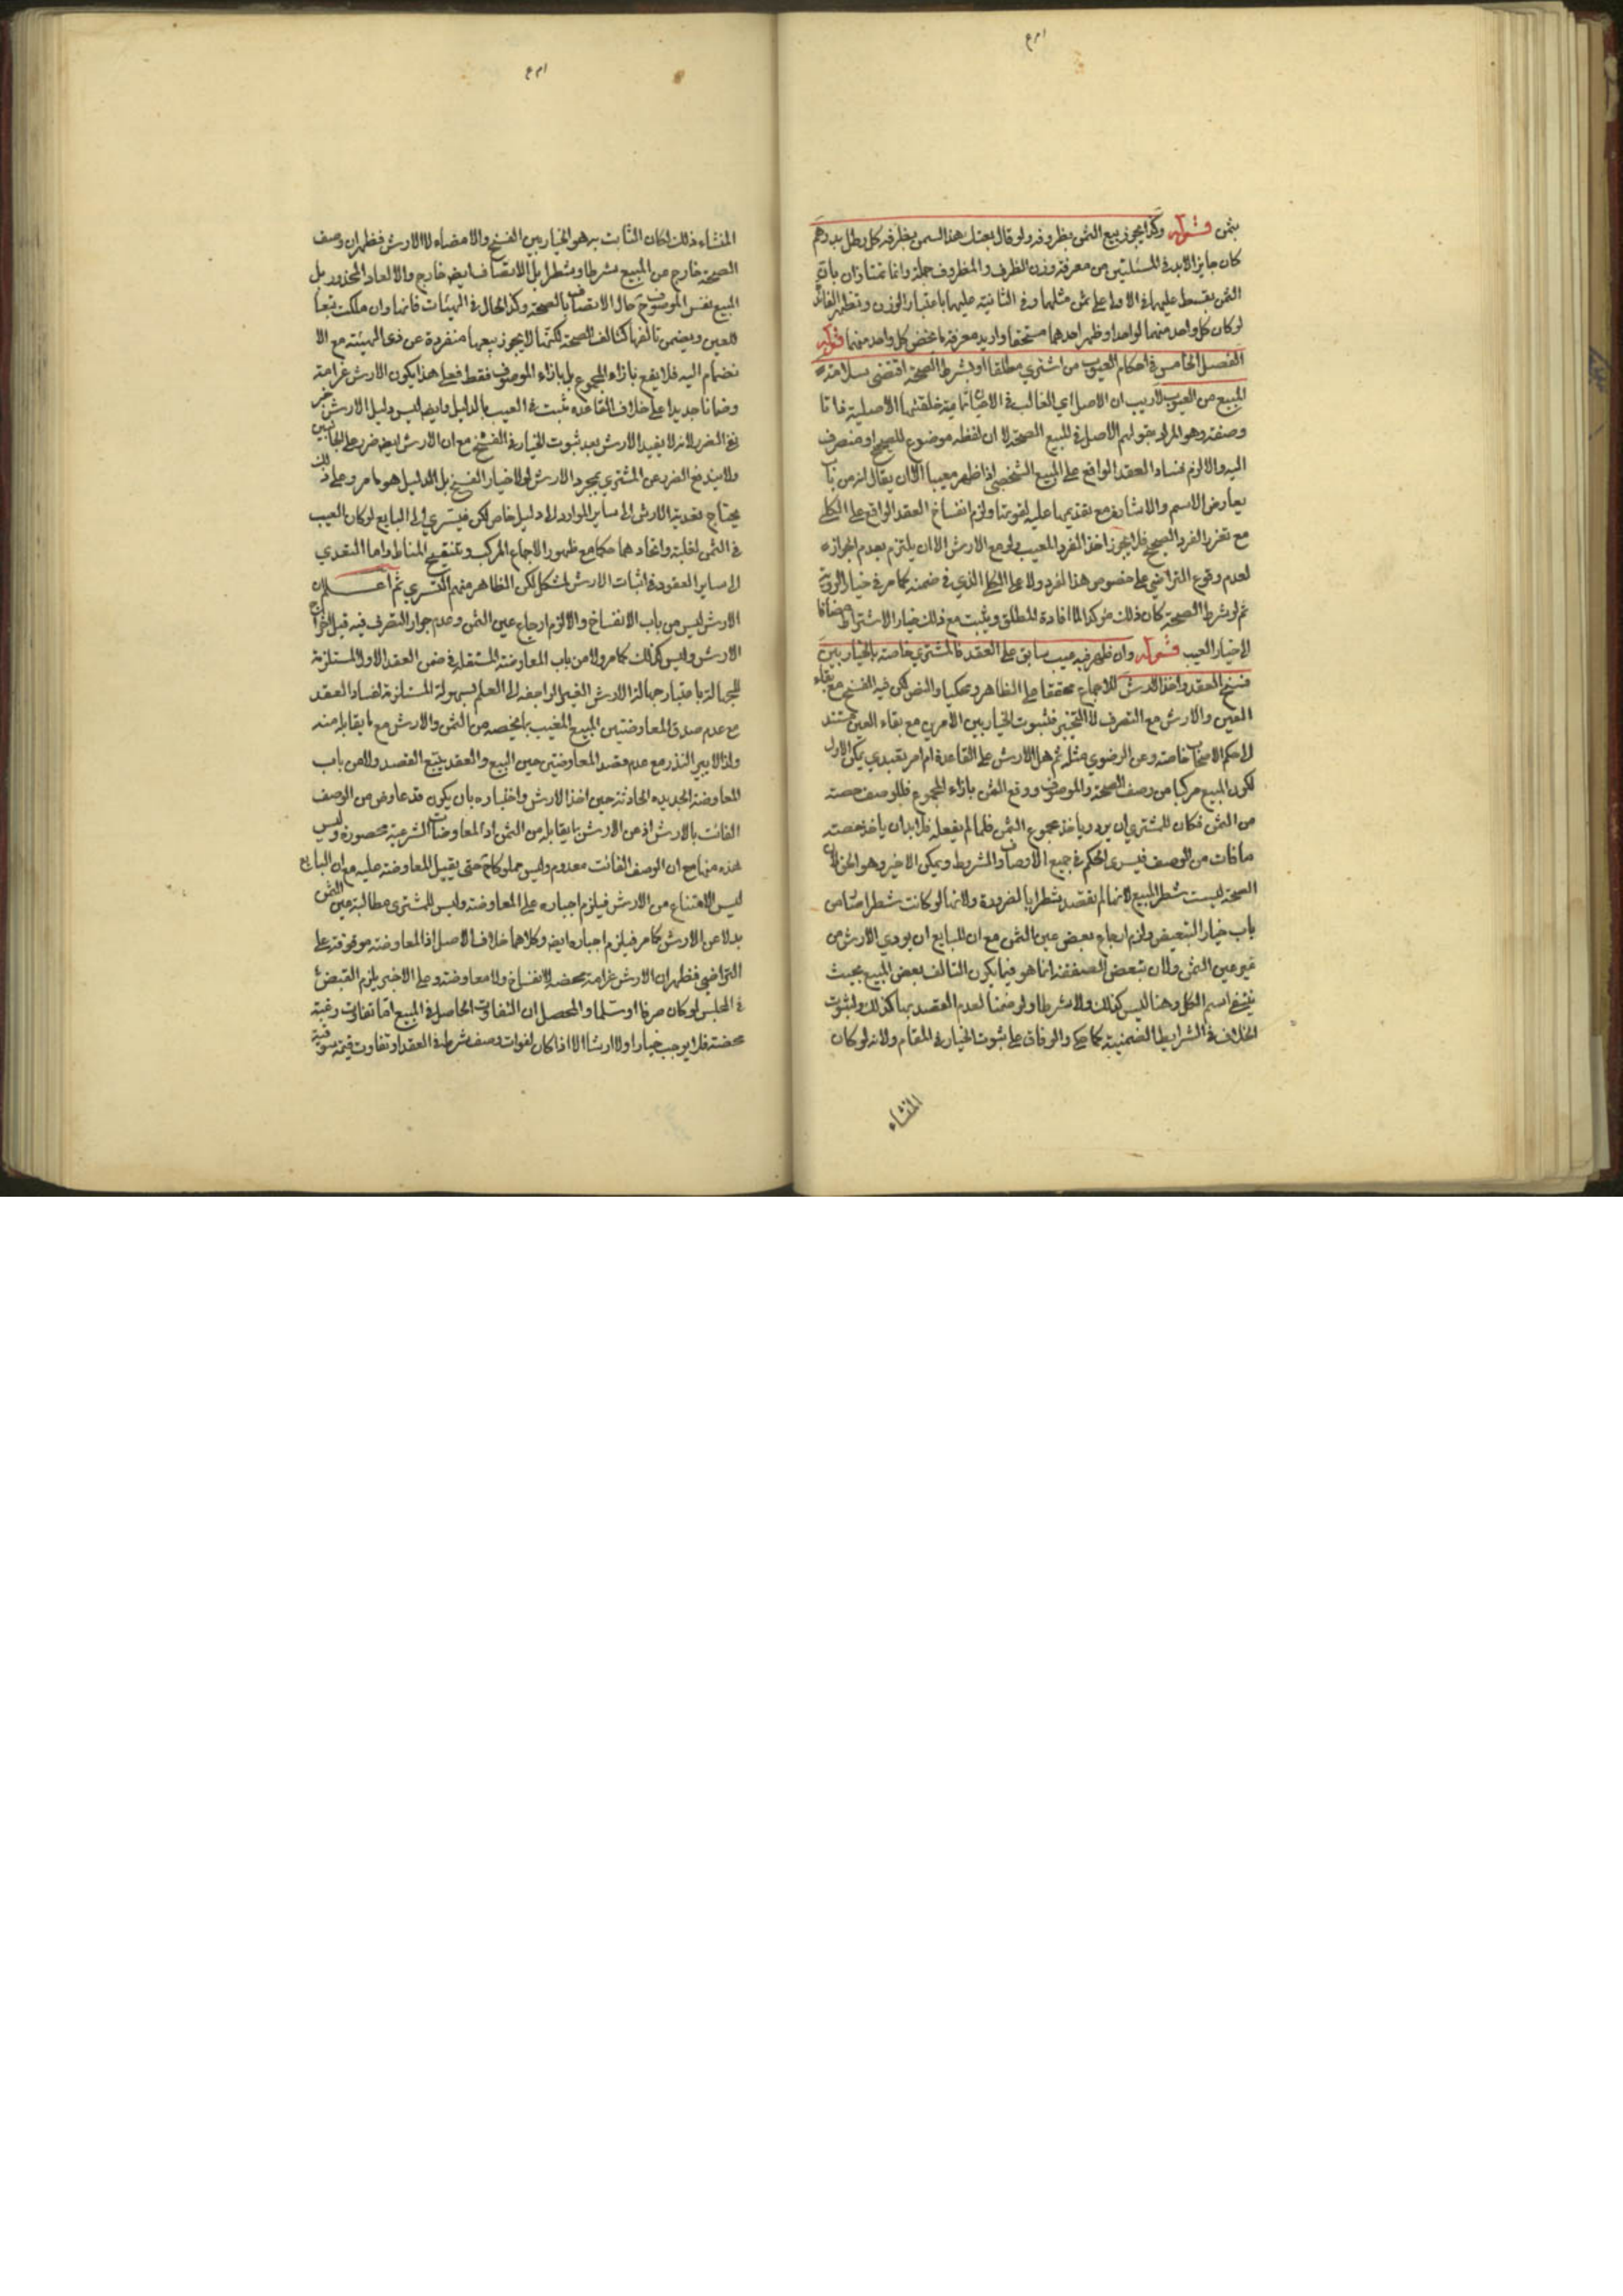 بثمن قوله وكذا يجوز بيع الثمن بظروفه ولو قال بعتك هذا السمن بظرفه كل رطل بدرهم
كان جايزا لابد في المسئلتين من معرفة وزن الظرف والمظروف جملة وانما تمتازان بان
الثمن يقسط عليهما في الاولى على ثمن مثلهما وفي الثانية عليهما باعتبار الوزن وتظهر الفائدة
لو كان كل واحد منهما لواحد او ظهر احدهما مستحقا واريد معرفة ما يخص كل واحد منهما قوله
الفصل الخامس في احكام العيوب من اشترى مطلقا او بشرط الصحة اقتضى سلامة
المبيع من العيوب لا ريب ان الاصل اي الغالب في الاعيان تمامية خلقتها الاصلية ذاتا
وصفة وهو المراد بقولهم الاصل في المبيع الصحة لا ان لفظه موضوع للصحيح او منصرف
اليه والا لزم فساد العقد الواقع على المبيع الشخصي اذا ظهر معيبا الا ان يقال انه من باب
تعارض الاسم والاشارة مع تقديمها عليه لقوتها ولزم انفساخ العقد الواقع على الكلي
مع تعذر الفرد الصحيح فلا يجوز اخذ الفرد المعيب ولو مع الارش الا ان يلتزم بعدم الجواز
لعدم وقوع التراضي على خصوص هذا الفرد ولا على الكلي الذي في ضمنه كما مر في خيار الروية
ثم لو شرط الصحة كان ذلك مؤكدا لما افاده المطلق ويثبت مع ذلك خيار الاشتراط مضافا
الى خيار العيب قوله وان ظهر فيه عيب سابق على العقد فالمشتري خاصة بالخيار بين
فسخ العقد واخذ الارش للاجماع محققا على الظاهر ومحكيا والنص لكن فيه الفسخ مع بقاء
العين والارش مع التصرف لا التخيير فثبوت الخيار بين الامرين مع بقاء العين مستند
الى حكم الاصحاب خاصة وعن الرضوي مثله ثم هل الارش على القاعدة ام امر تعبدي يمكن الاول
لكون المبيع مركبا من وصف الصحة والموصوف ووقع الثمن بازاء المجموع فللوصف حصة
من الثمن فكان للمشتري ان يرد وياخذ مجموع الثمن فلما لم يفعله فلا بد ان ياخذ حصة
ما فات من الوصف فيسري الحكم في جميع الاوصاف والشروط ويمكن الاخير وهو الحق لان
الصحة ليست شطر المبيع لانها لم تقصد شطرا بالضرورة ولانها لو كانت شطرا من
باب خيار التبعيض ولزم ارجاع بعض عين الثمن مع ان للبايع ان يودي الارش من
غير عين الثمن ولان تبعض الصفقة انما هو فيما يكون التالف بعض المبيع بحيث
ينتفي اسم الكل وهنا ليس كذلك ولا شرطا ولو ضمنا لعدم القصد بها كذلك ولثبوت
الخلاف في الشرايط الضمنية كما حكي والوفاق على ثبوت الخيار في المقام ولانه لو كان
المنشاء
المنشاء ذلك لكان الثابت به هو الخيار بين الفسخ والامضاء لا الارش فظهر ان وصف
الصحة خارج من المبيع شرطا وشطرا بل الاتصاف ايضا خارج والا لعاد المحذور بل
المبيع نفس الموصوف حال الاتصاف بالصحة وكذا الحال في الهيئات فانها وان ملكت تبعا
للعين ويضمن تالفها كتالف الصحة لكنها لا يجوز بيعها منفردة عن ذي الهيئة مع الا
نضمام اليه فلا يقع بازاء المجموع بل بازاء الموصوف فقط فعلى هذا يكون الارش غرامة
وضمانا جديدا على خلاف القاعدة ثبت في العيب بالدليل وايضا ليس دليل الارش خبر
نفي الضرر لانه لا يفيد الارش بعد ثبوت الخيار في الفسخ مع ان الارش ايضا ضرر على الجانبين
ولا يندفع الضرر عن المشتري بمجرد الارش لولا خيار الفسخ بل الدليل هو ما مر وعلى ذلك
يحتاج تعدية الارش الى ساير الموارد الى دليل خاص لكن فيسري الى البايع لو كان العيب
في الثمن لغلبة واتحادهما حكما مع ظهور الاجماع المركب وتنقيح المناط واما التعدي
الى ساير العقود في اثبات الارش لمشكل لكن الظاهر منهم التسري ثم اعلم ان
الارش ليس من باب الانفساخ والا لزم ارجاع عين الثمن وعدم جواز التصرف فيه قبل اخراج
الارش وليس كذلك كما مر ولا من باب المعاوضة المستقلة في ضمن العقد الاول المستلزمة
للجهالة باعتبار جهالة الارش الغير الراجعة الى العلم بسهولة المستلزمة لفساد العقد
مع عدم صدق المعاوضتين المبيع المعيب بما يخصه من الثمن والارش مع ما يقابله منه
ولذا لا يبر النذر مع عدم قصد المعاوضتين حين البيع والعقد يتبع القصد ولا من باب
المعاوضة الجديدة الحادثة حين اخذ الارش واختياره بان يكون قد عاوض من الوصف
الفائت بالارش اذ عن الارش ما يقابله من الثمن اذ المعاوضات الشرعية محصورة وليس
هذه منها مع ان الوصف الفائت معدوم وليس مملوكا حتى يقبل المعاوضة عليه مع ان البايع
ليس الامتناع من الارش فيلزم اجباره على المعاوضة وليس للمشتري مطالبة عين الثمن
بدلا عن الارش كما مر فيلزم اجباره ايضا وكلاهما خلاف الاصل اذ المعاوضة موقوفة على
التراضي فظهر ان الارش غرامة محضة لا انفساخ ولا معاوضة وعلى الاخير يلزم القبض
في المجلس لو كان صرفا او سلما والمحصل ان التفاوت الحاصل في المبيع اما تفاوت رغبة
محضة فلا يوجب خيارا ولا ارشا الا اذا كان لفوات وصف شرط في العقد او تفاوت قيمة سوقية